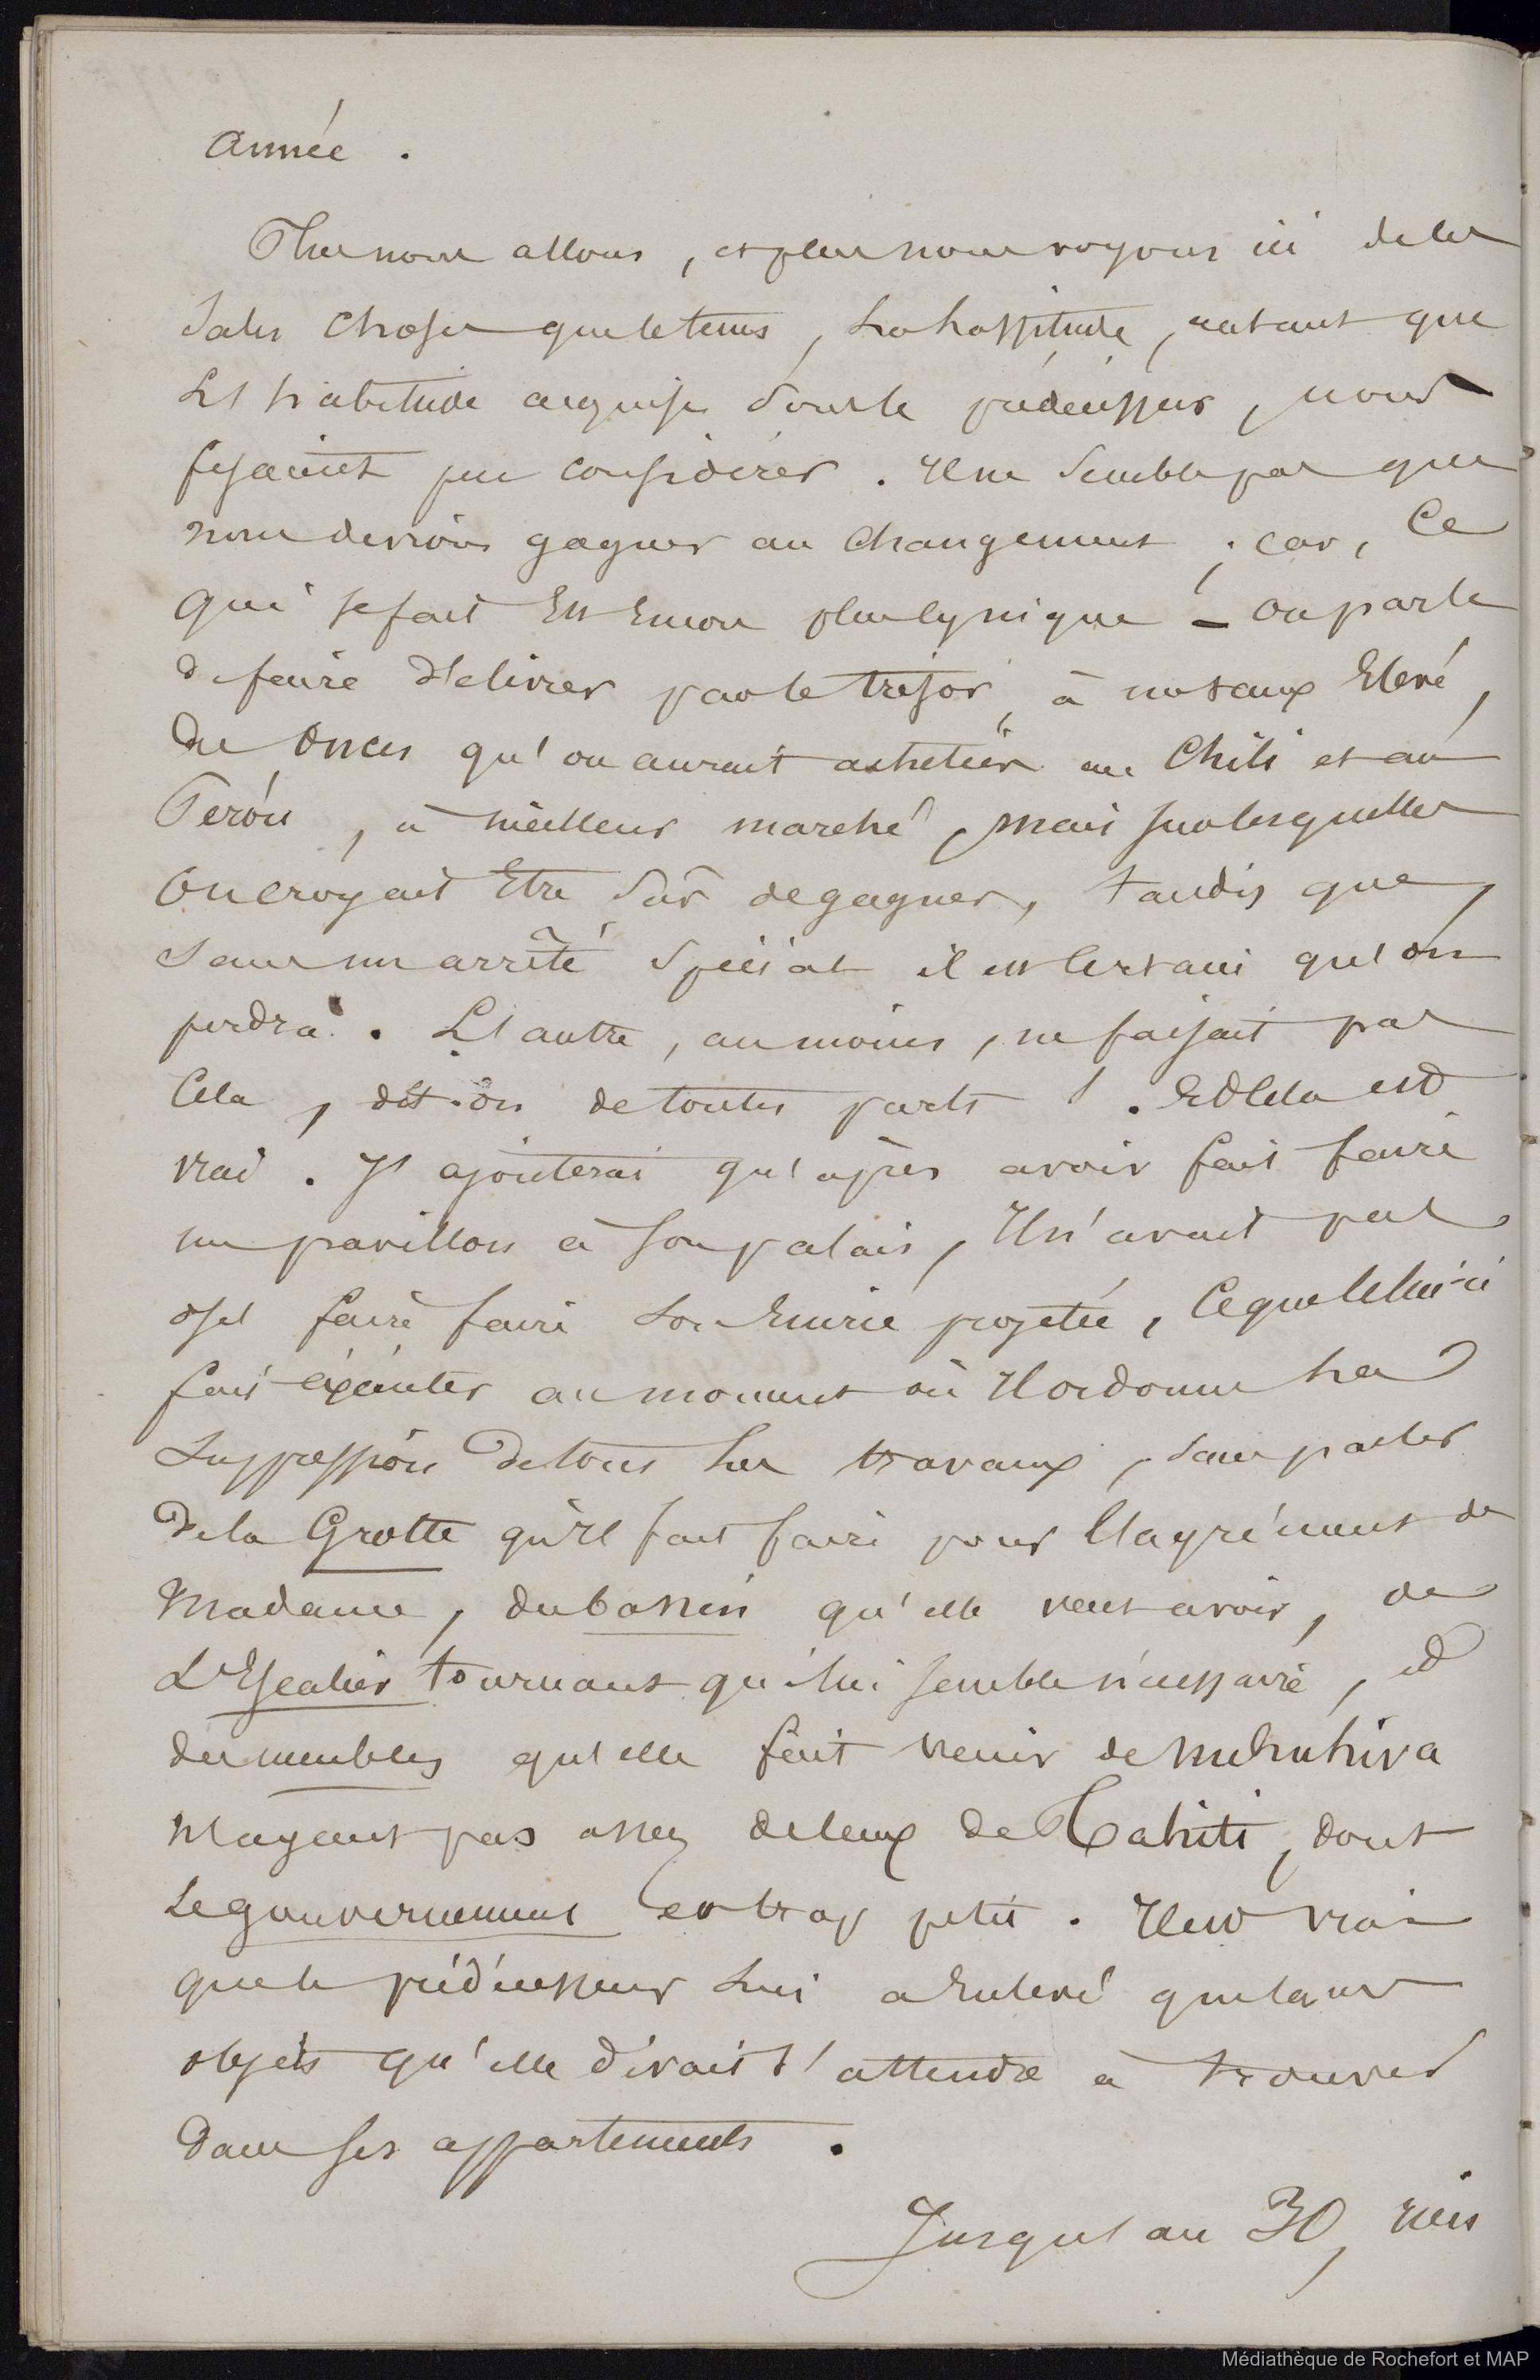 Année .
Plus nous allons, et plus nous voyons ici de les
sales choses que le tems, La Lassitude, autant que
L'habitude acquise sous le prédécesseur, nous
fesaient peu considérer. Il ne semble pas que
nous devions gagner au changement ; car, Ce
qui se fait Est Encore plus Cynique – on parle
de faire délivrer par le trésor, à un taux Elevé,
des onces qu'on aurait achetées au Chili et au
Pérou, à meilleur marché, mais sur lesquelles
On croyait Être sûr de gagner, tandis que,
sans un arrêté spécial il est Certain qu'on
perdra. L'autre, au moins, ne faisait pas
Cela, dit-on de toutes parts ! . Et Cela est
vrai . J'ajouterai qu'après avoir fait faire
un pavillon à son palais, Il n'avait pas
osé faire faire son Ecurie projetée, Ce que Celui-ci
fait éxécuter au moment où Il ordonne La
Suppression De tous Les travaux, sans parler
De la Grotte qu'Il fait faire pour l'agrément de
Madame, du bassin qu'elle veut avoir, de
L'Escalier tournant qui lui semble nécessaire, et
des meubles qu'elle fait venir de nukuhiva
N'ayant pas assez de ceux de Tahiti, dont
Le gouvernement est trop petit . Il est vrai
que le prédécesseur Lui a Enlevé quelques
objets qu'elle devait s'attendre à trouver
Dans ses appartements .
Jusqu'au 30, rien
Médiathèque de Rochefort et MAP